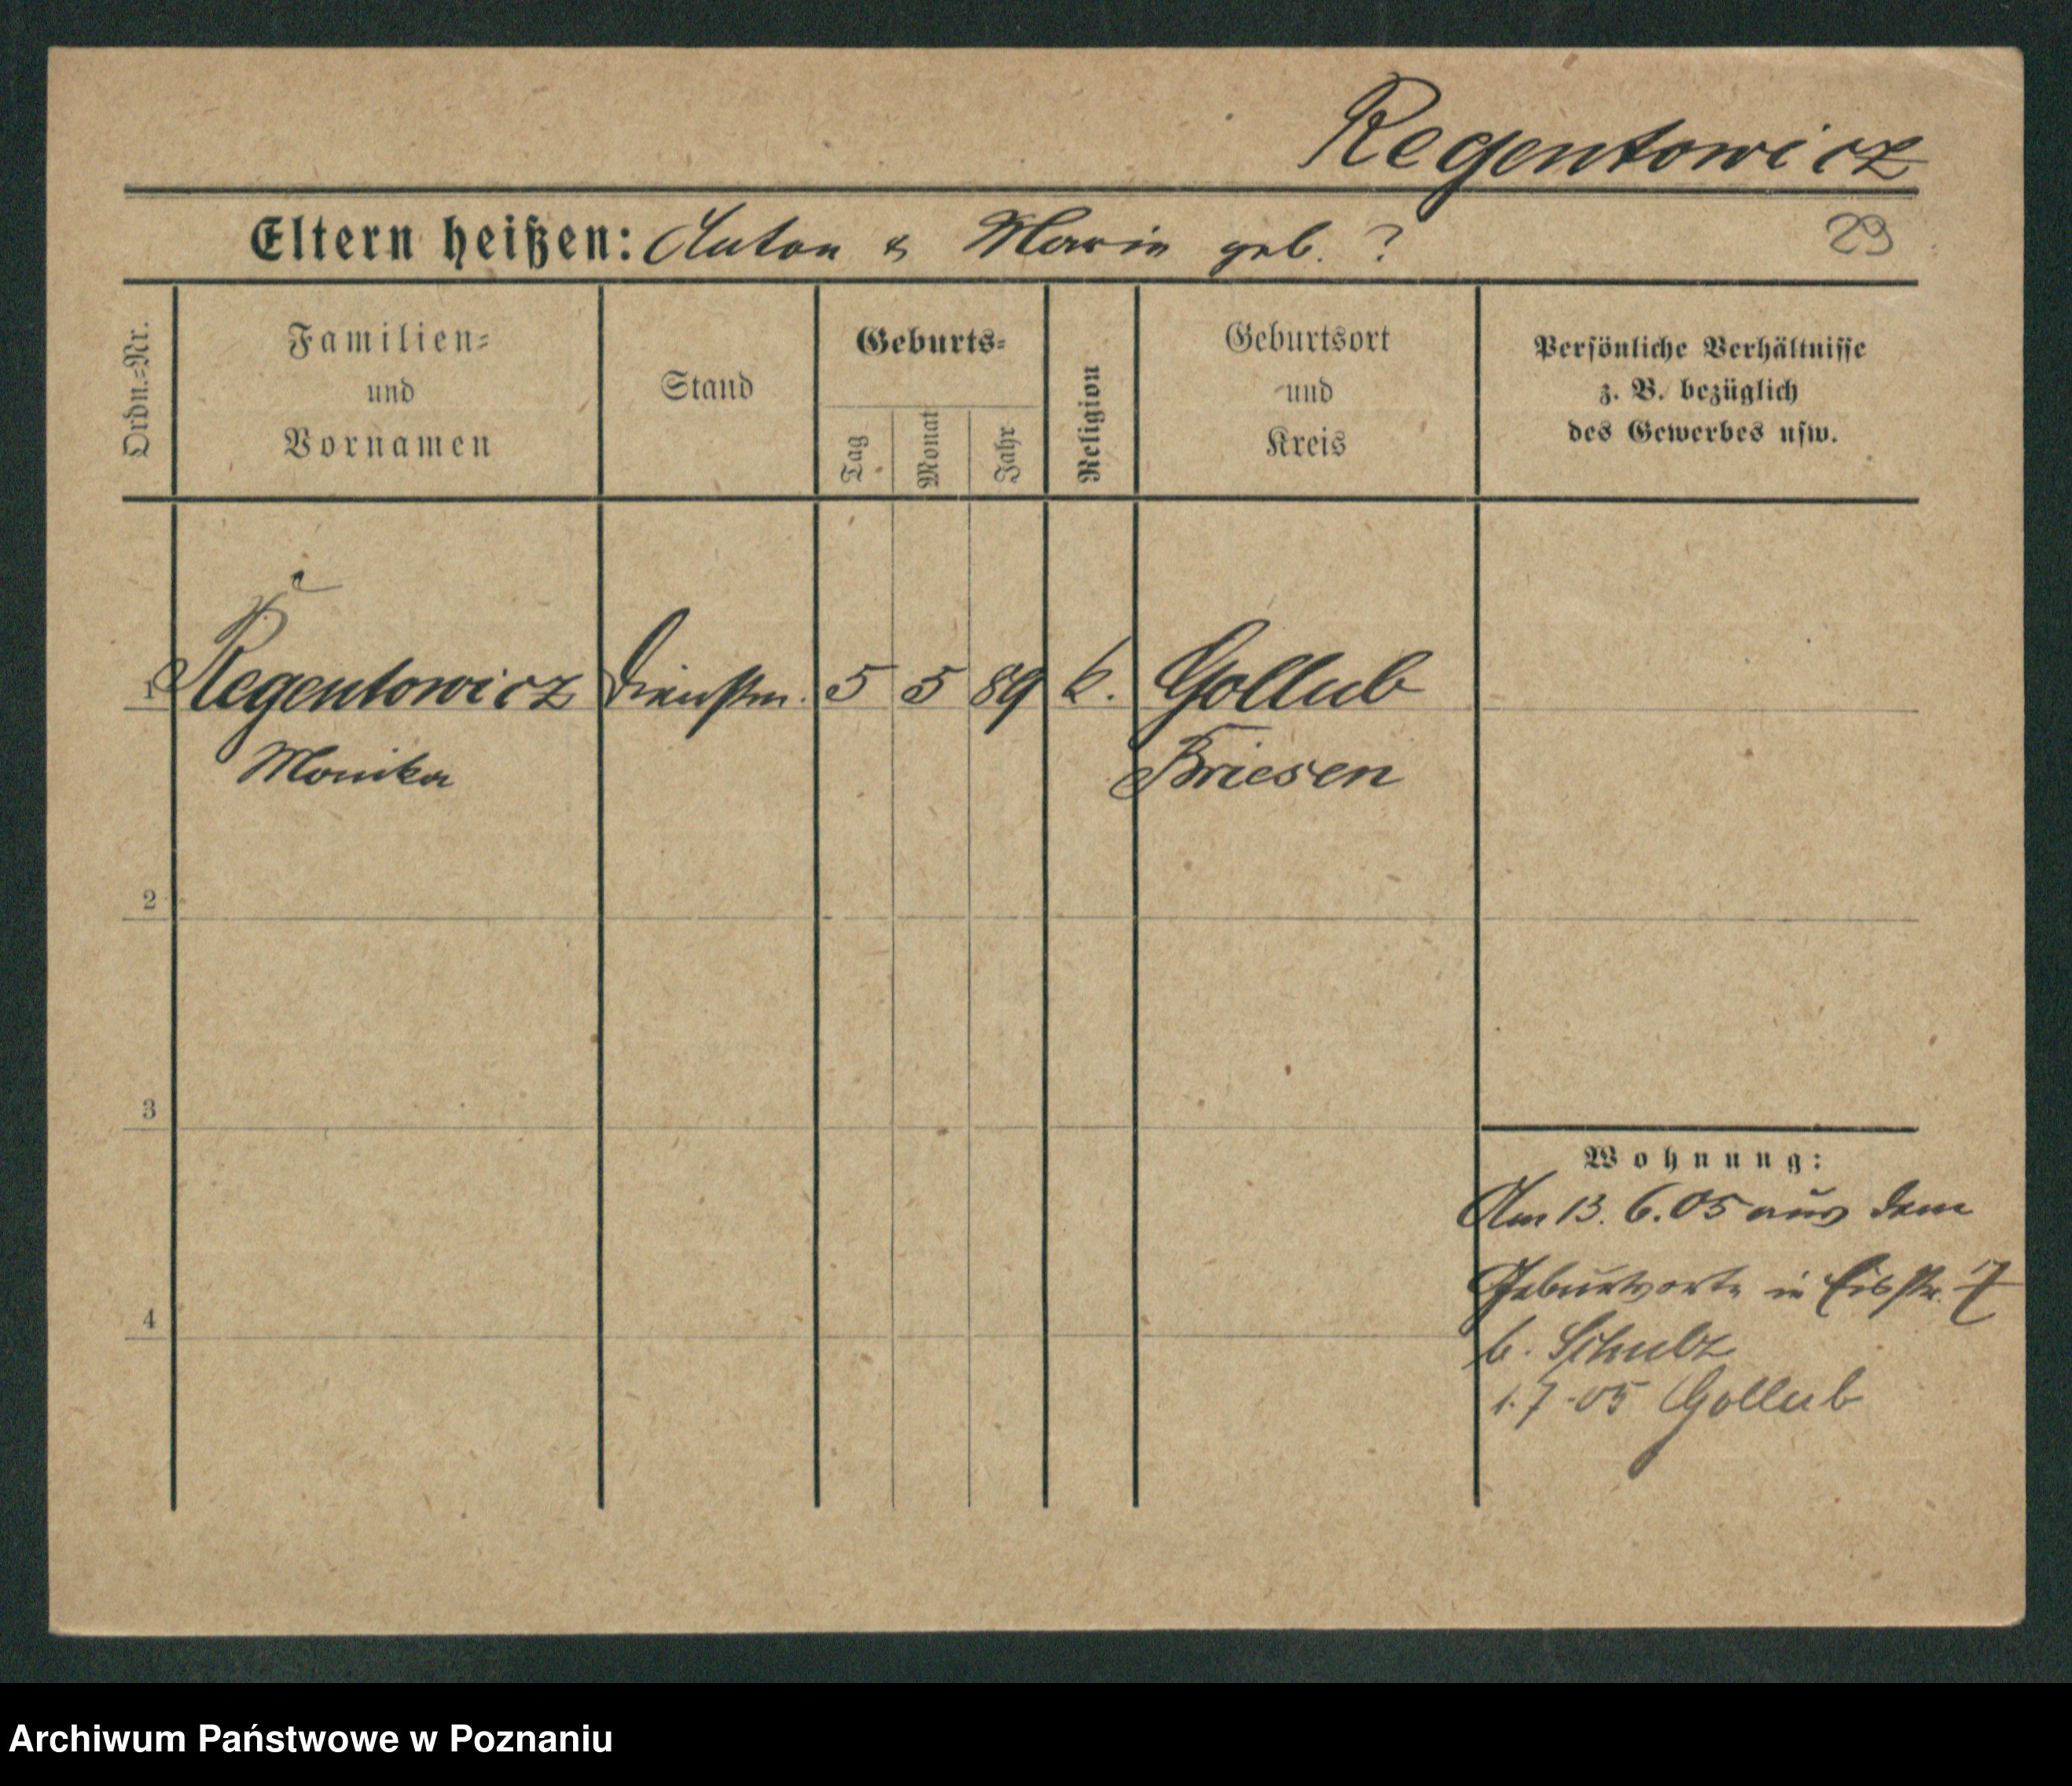 Regentowicz
Eltern heißen: Anton & Marie geb. ?
29
Ordn.-Nr.
Familien-
und
Vornamen
Stand
Geburts-
Tag
Monat
Jahr
Religion
Geburtsort
und
Kreis
Persönliche Verhältnisse
z. B. bezüglich
des Gewerbes usw.
1 Regentowicz Dienstm. 5 5 89 k. Gollub
Monika Briesen
2
3
4
Wohnung:
Am 13. 6. 05 aus dem
Geburtsorte in 17
b. Schulz
1. 7. 05 Gollub
Archiwum Państwowe w Poznaniu